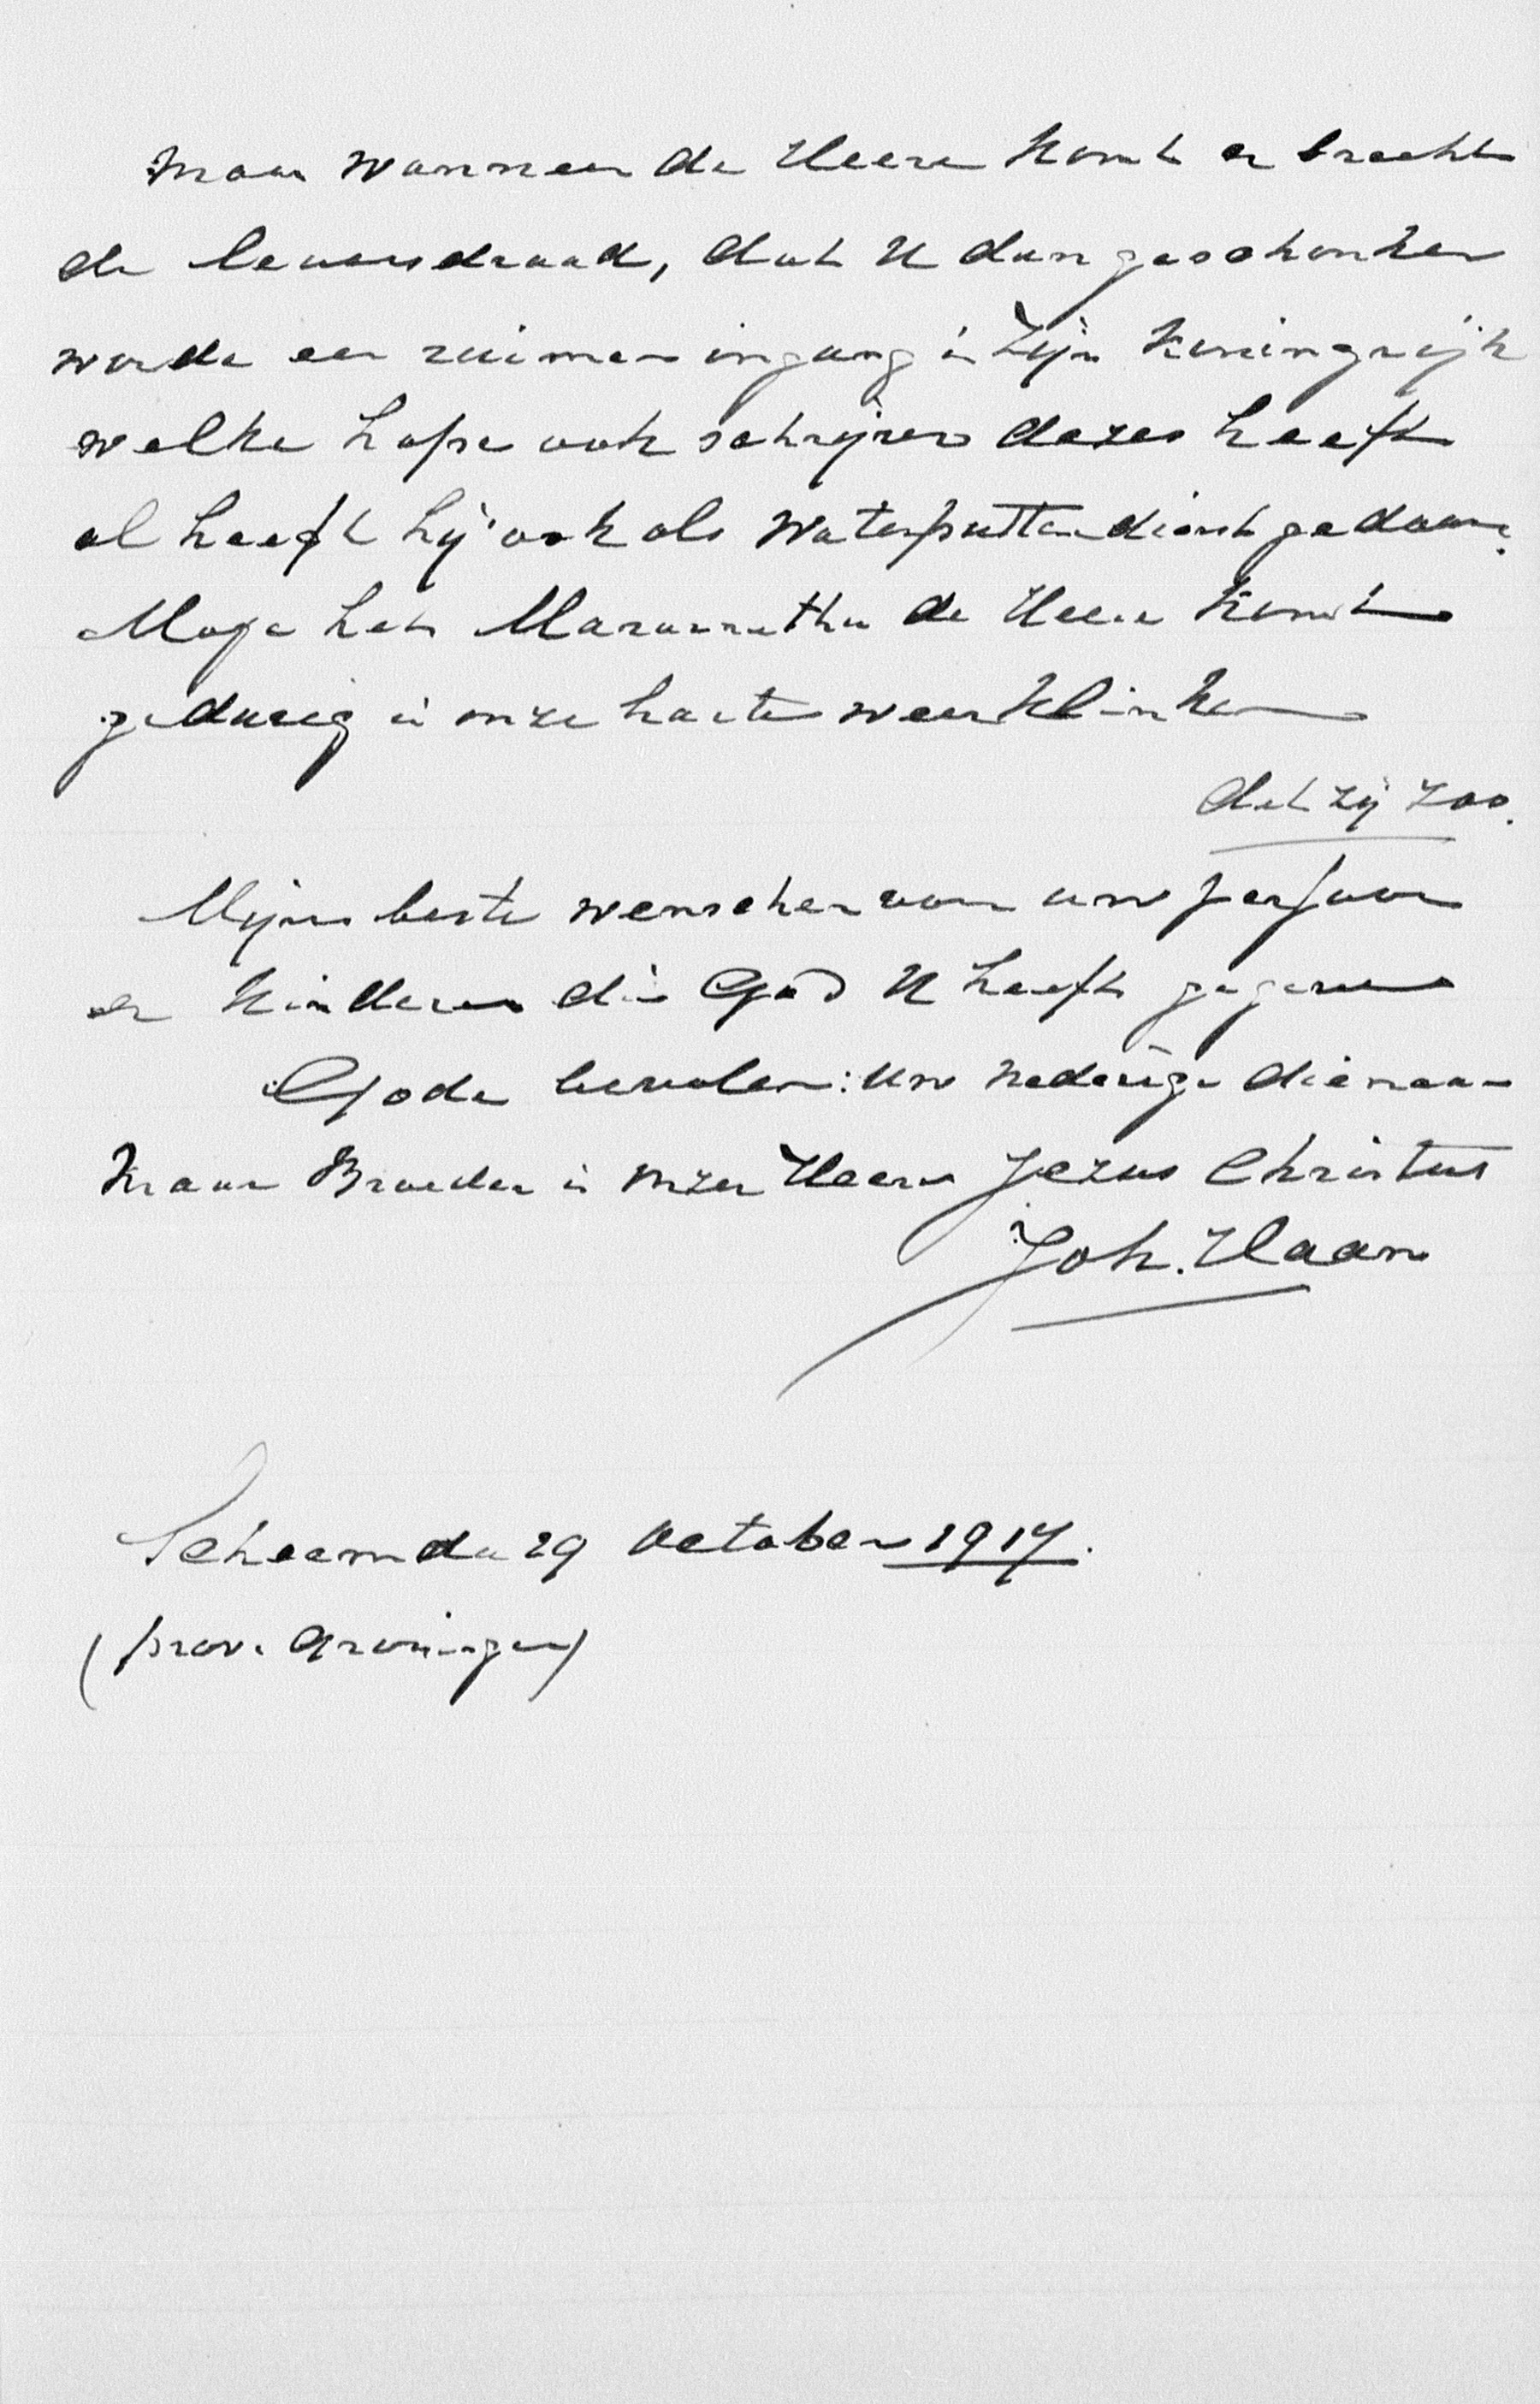 maar wanneer de Heere komt en breekt
de levensdraad, dat U dan geschonken
worde een ruimen ingang in Zijn Koningrijk
welke hope ook schrijver dezes heeft
al heeft hij ook als waterputter dienst gedaan.
Moge het Maranatha de Heere komt
gedurig in onze harten weerklinken
dat zij zoo.
Mijne beste wenschen voor uw persoon
en kinderen die God U heeft gegeven
Gode bevolen: Uw nederige dienaar
maar Broeder in onzen Heere Jezus Christus
Joh. Haan
Scheemda 29 October 1917.
(prov. Groningen)